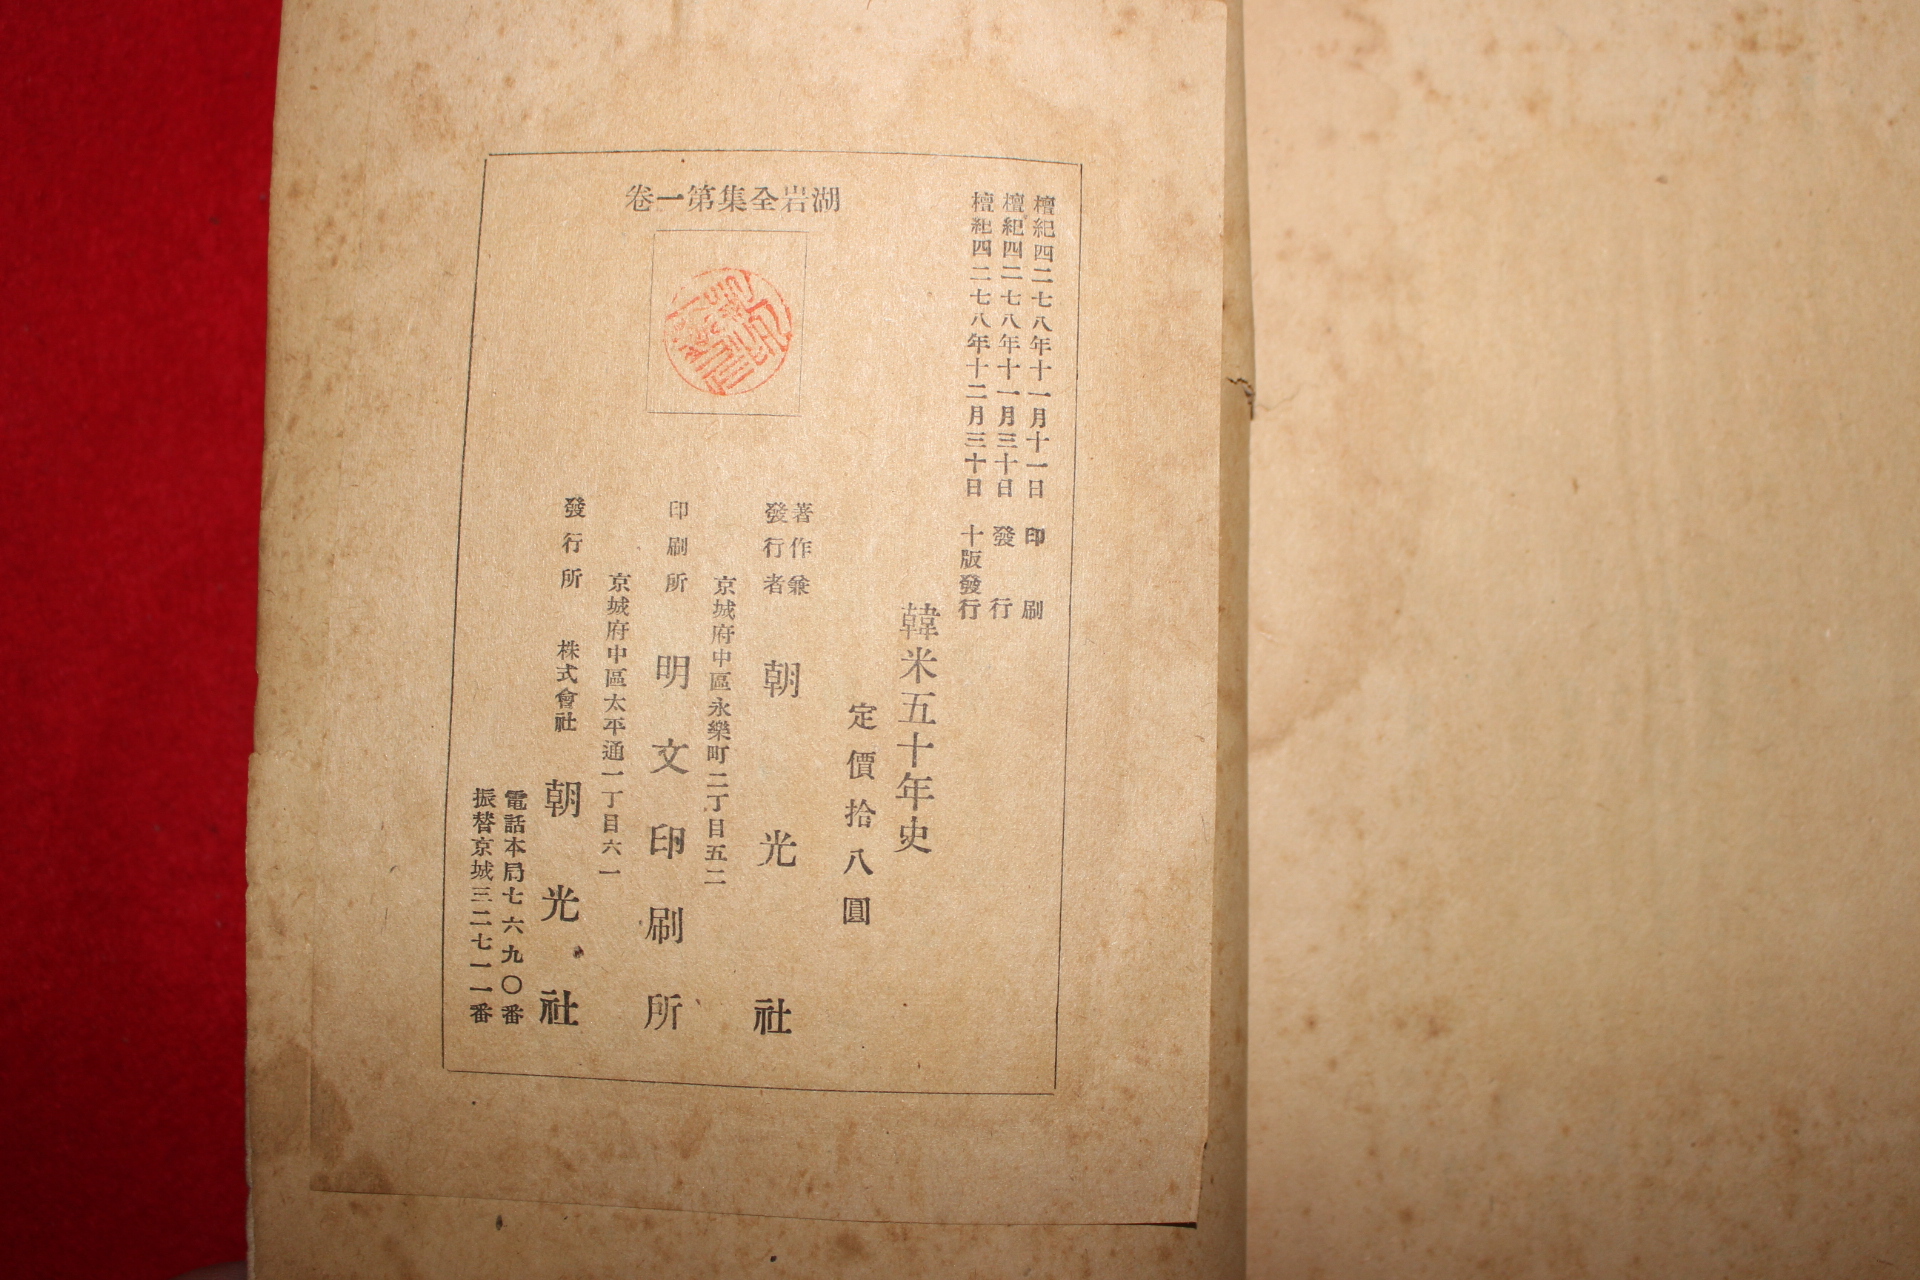 檀紀四二七八年十一月十一日 印刷
檀紀四二七八年十一月三十日 發行
檀紀四二七八年十二月三十日 十版發行
湖岩全集第一卷
韓米五十年史
定價拾八圓
著作兼
發行者 朝光社
京城府中區永樂町二丁目五二
印刷所 明文印刷所
京城府中區太平通一丁目六一
發行所 株式會社 朝光社
電話本局七六九〇番
振替京城三二七一一番